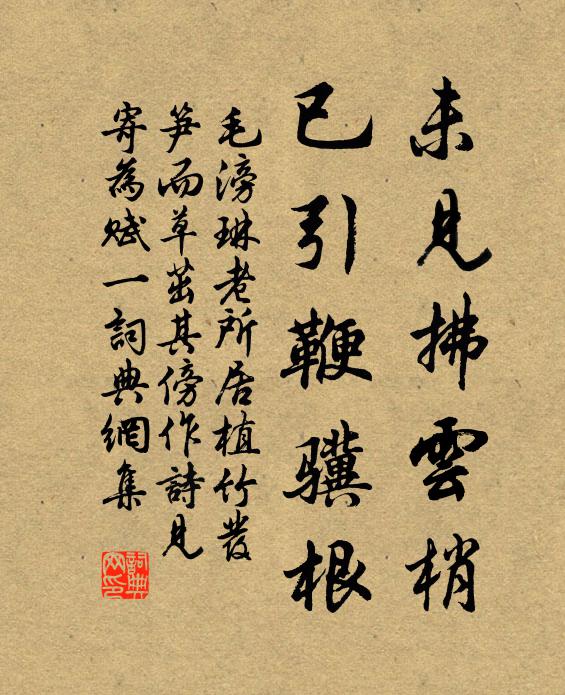 未見拂雲梢
已引鞭驥根
毛滂琳老所居植竹發
笋而草茁其傍作詩見
寄為賦一詞典網集
詞典網印